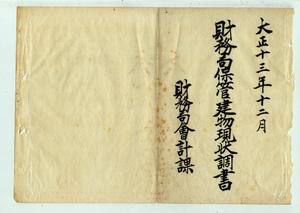 大正十三年十二月
財務局保管建物現状調書
財務局會計課